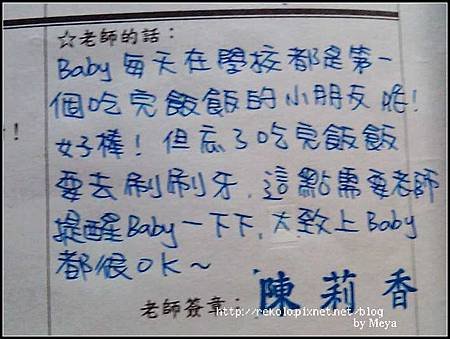 ☆老師的話：
Baby每天在學校都是第一
個吃完飯飯的小朋友呢！
！
好棒！但忘了吃完飯飯
要去刷刷牙，這點需要老師
提醒Baby一下下，大致上Baby
都很OK～
老師簽章：陳莉香
http://rekolo.pixnet.net/blog
by Meya